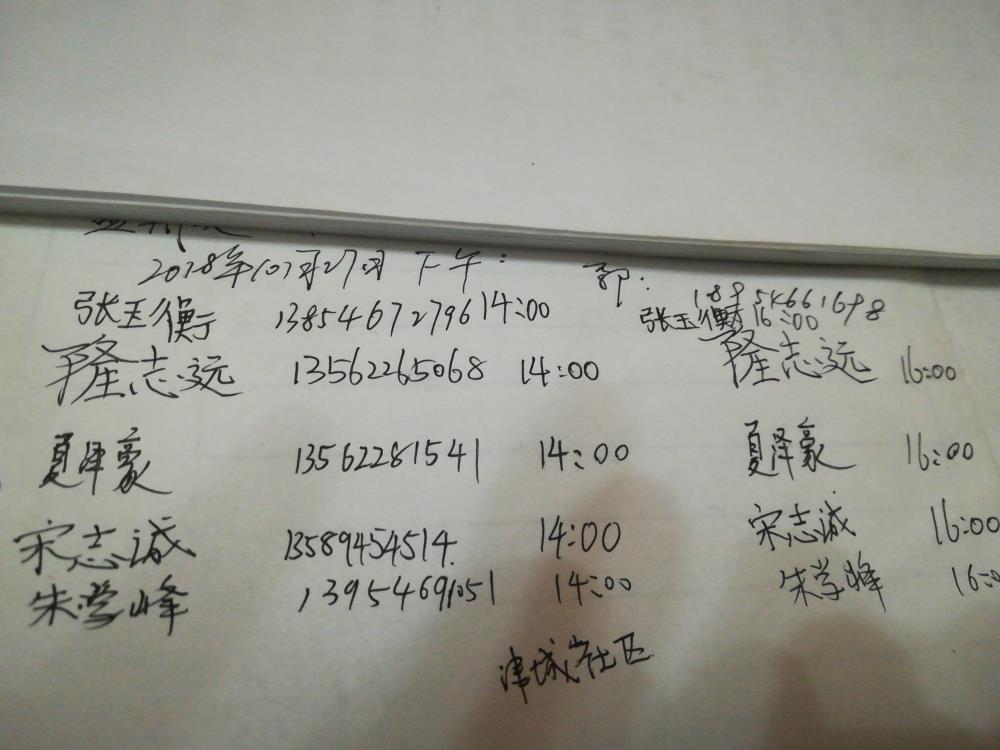 2018年10月27日 下午: 郭: 18954661698
张玉衡 13854672796 14:00 张玉衡 16:00
隆志远 13562265068 14:00 隆志远 16:00
夏泽豪 13562281541 14:00 夏泽豪 16:00
宋志诚 13589454514. 14:00 宋志诚 16:00
朱学峰 13954691051 14:00 朱学峰 16:0
津城社区